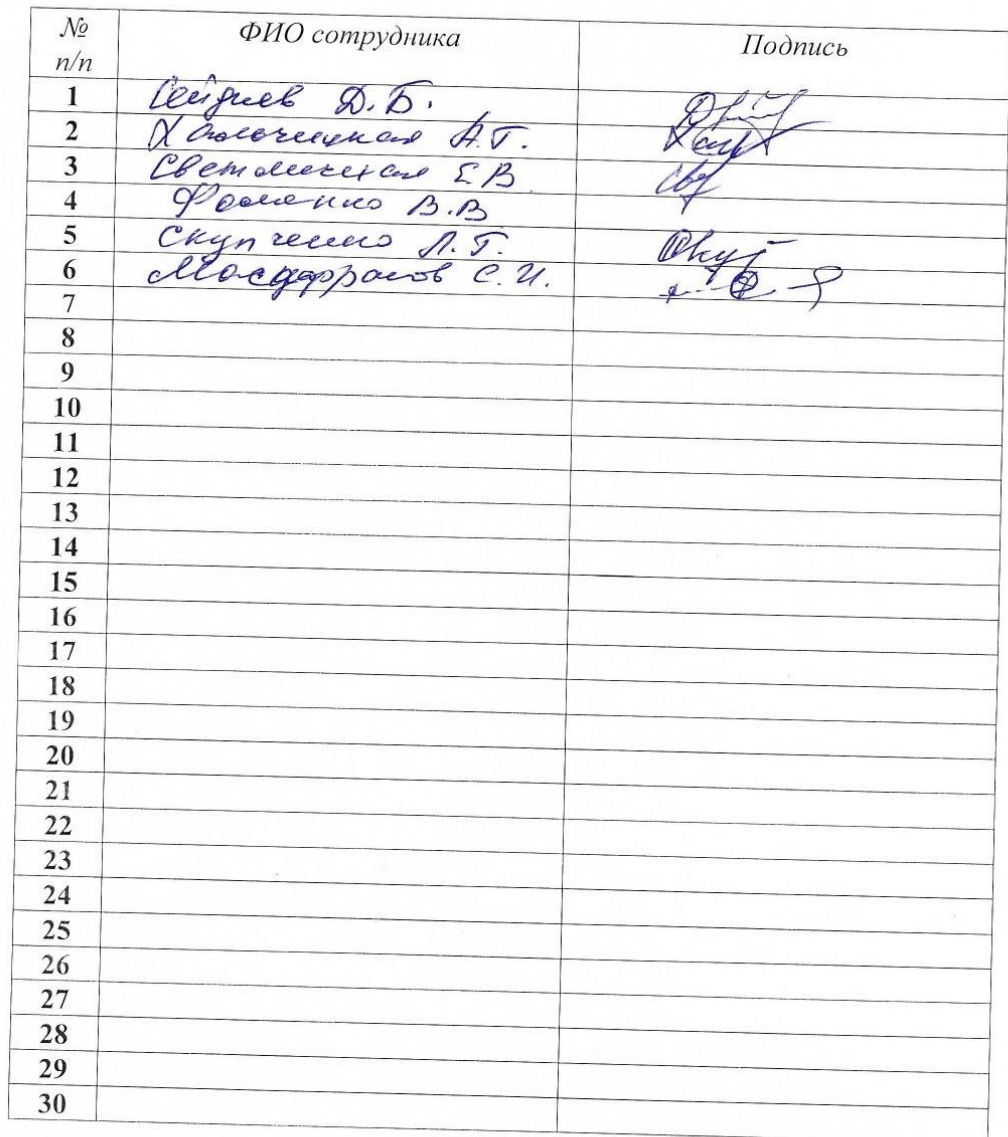 № п/п ФИО сотрудника Подпись
1 Сейдиев Д.Б.
2 А.Г.
3 Светличная Е.В
4 Фоменко В.В
5 Скупченко Л.Г.
6 С.И.
7
8
9
10
11
12
13
14
15
16
17
18
19
20
21
22
23
24
25
26
27
28
29
30